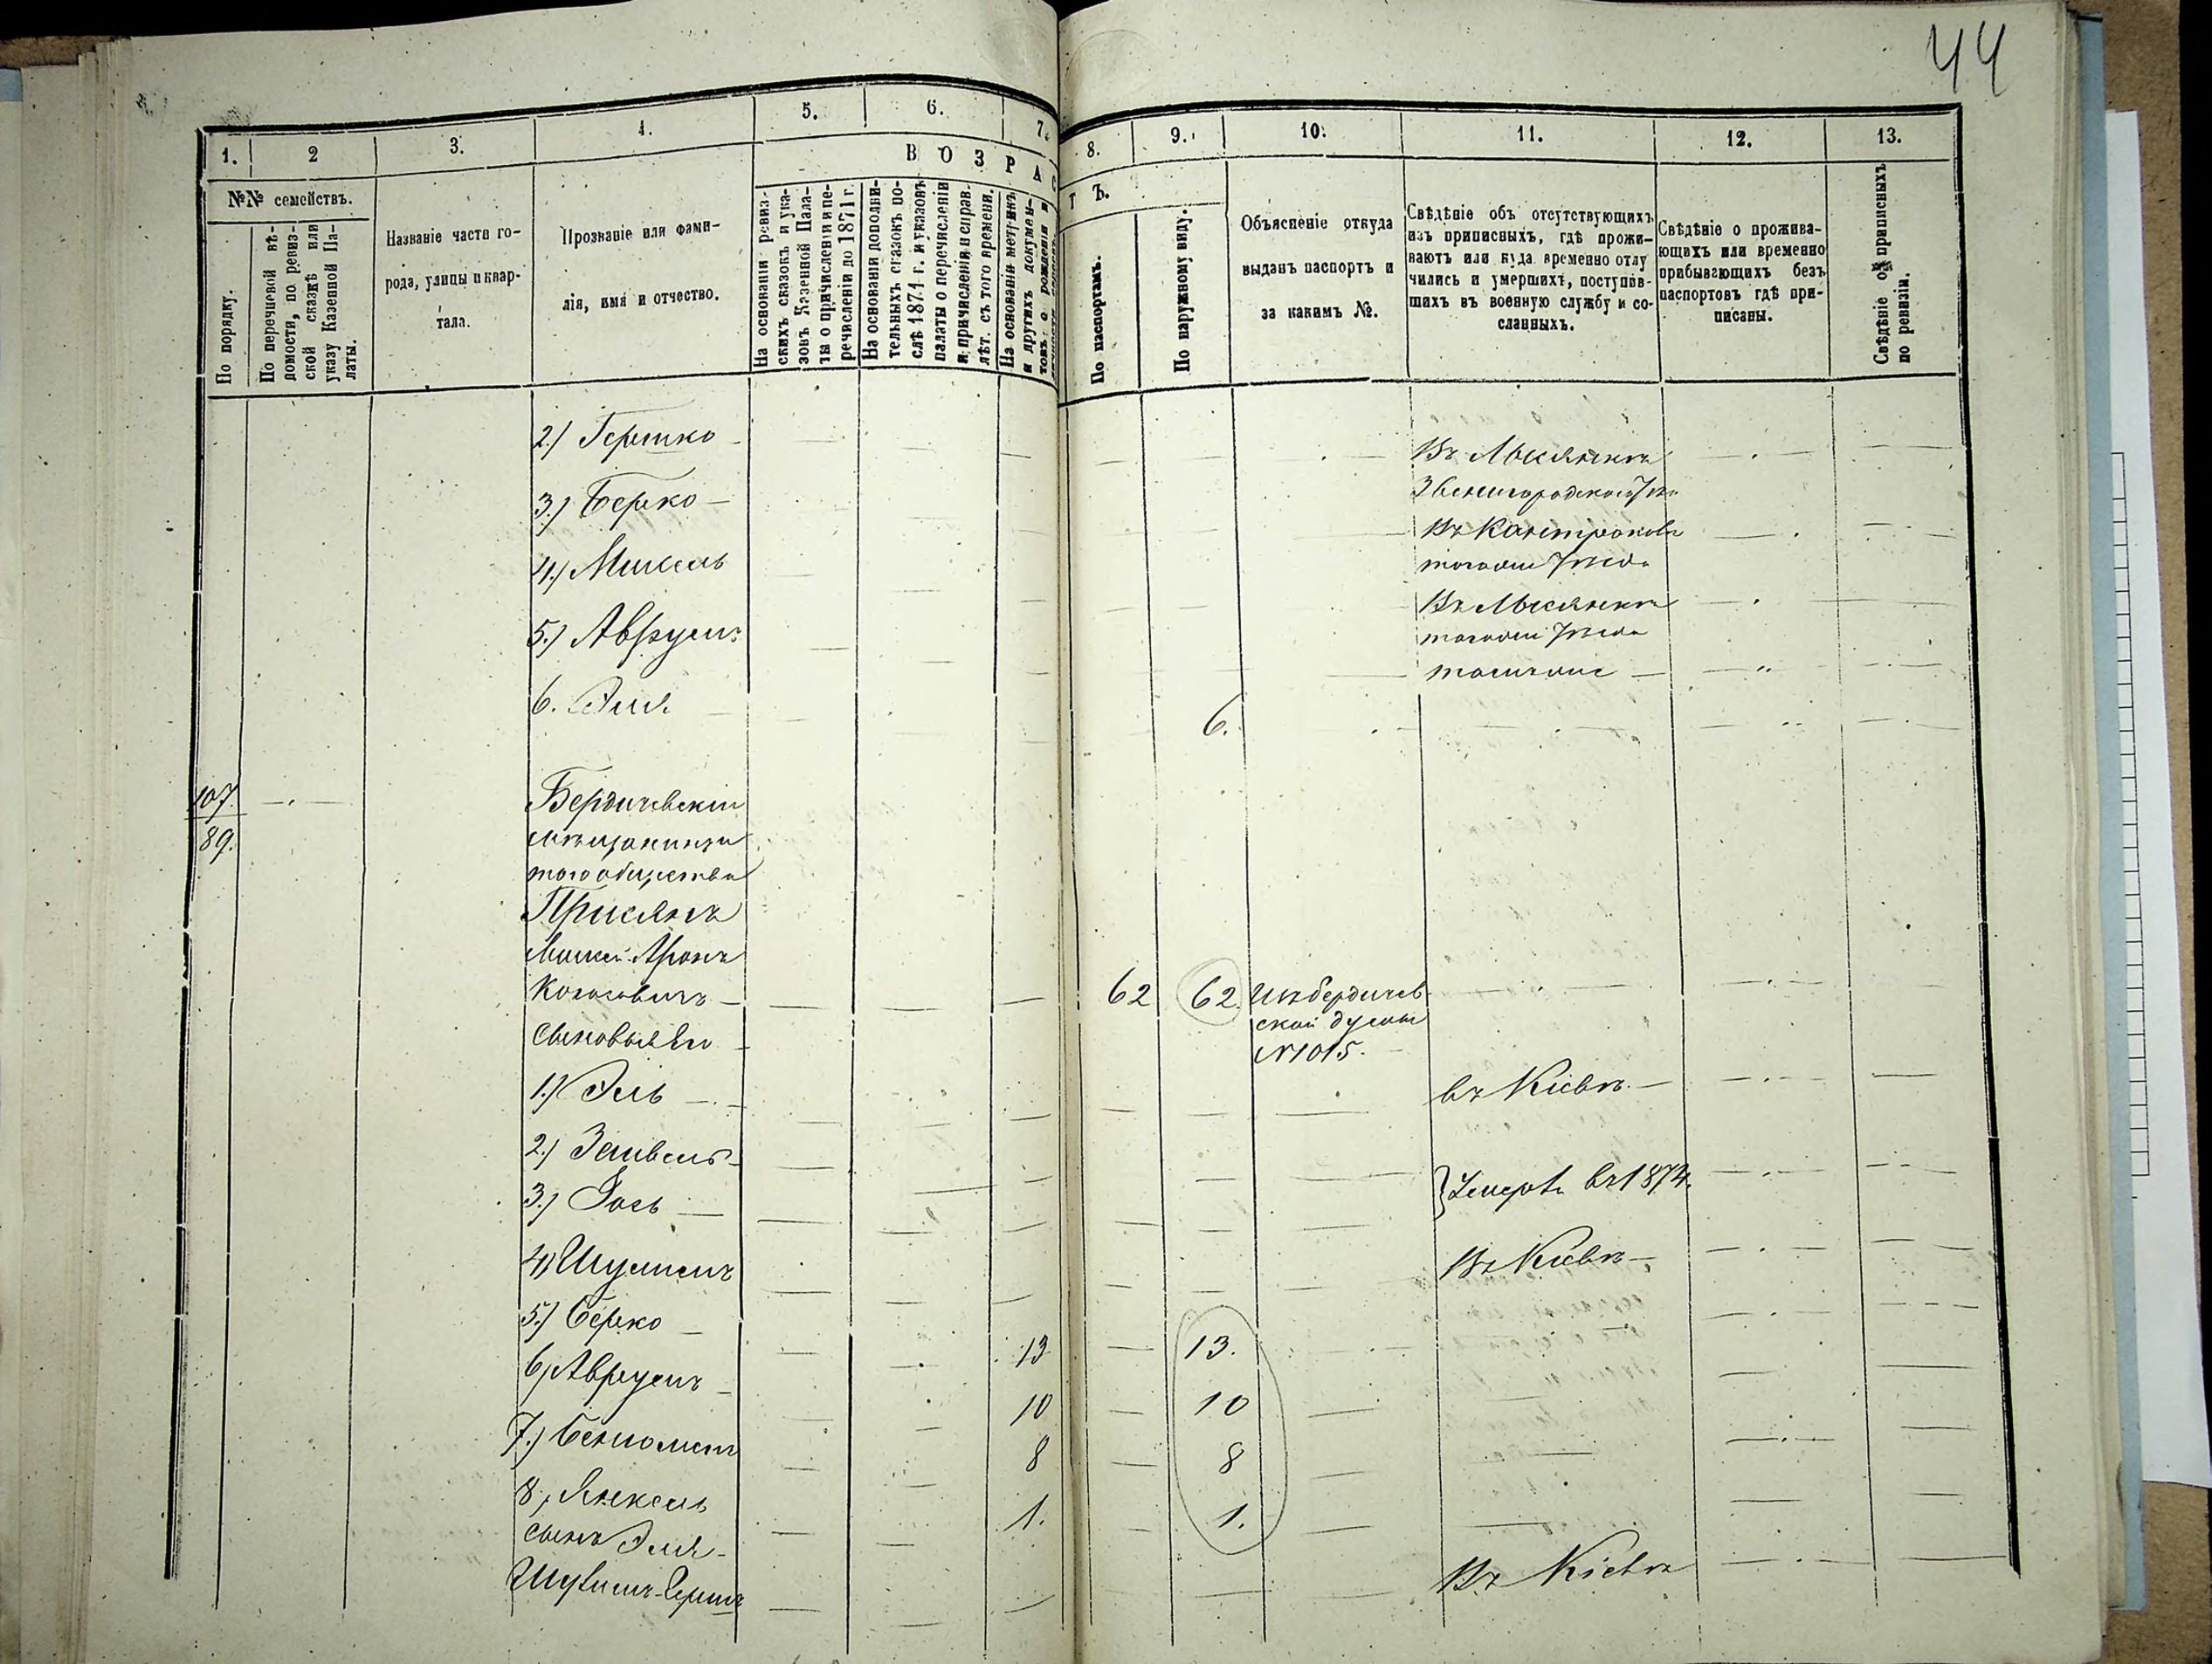 44
1.
2
3.
4.
5.
6.
7.
8.
9.
10.
11.
12.
13.
В О З Р А С
Т Ъ.
№№ семействъ.
По порядку.
По перечневой вѣ-
домости, по ревиз-
ской сказкѣ или
указу Казенной Па-
латы.
Названіе части го-
рода, улицы и квар-
тала.
Прозваніе или фами-
лія, имя и отчество.
На основаніи ревиз-
скихъ сказокъ и ука-
зовъ Казенной Пала-
ты о причисленіи и пе-
речисленіи до 1871 г.
На основаніи дополни-
тельныхъ сказокъ по-
слѣ 1871 г. и указовъ
палаты о перечисленіи
и причисленіи и справ.
лѣт. съ того времени.
На основаніи метрикъ
и другихъ докумен-
товъ: о рожденіи и
По паспортамъ.
По наружному виду.
Объясненіе откуда
выданъ паспортъ и
за какимъ №.
Свѣдѣніе объ отсутствующихъ
изъ приписныхъ, гдѣ прожи-
ваютъ или куда временно отлу
чились и умершихъ, поступив-
шихъ въ военную службу и со-
сланныхъ.
Свѣдѣніе о прожива-
ющихъ или временно
прибывающихъ безъ
паспортовъ гдѣ при-
писаны.
Свѣдѣніе о приписныхъ
по ревизіи.
2.) Гершко —
Въ Лысянкѣ
Звенигородскаго Уѣз
3.) Берко —
Въ Кантрокова
тогоже Уѣзда
4.) Мисель
Въ Лысянкѣ
тогоже Уѣзда
5.) Аврумъ
тамъ же —
6. Эля
6.
107.
89.
Бердичевскій
мѣщанинъ и
того общества
Присянъ
Мошко Аронъ
62
62.
Изъ Бердичев
ской думы
№ 1015.
сыновья его
1.) Эль —
въ Кіевѣ. —
2.) Зейвель —
3.) Іось —
} Умерли въ 1874.
4) Шулимъ
Въ Кіевѣ —
5.) Берко —
13
13.
6, Аврумъ —
10
10
7.) Беніоминъ
8
8
8, Янкель
1.
1.
сынъ Эля -
Шулимъ-Гершъ
Въ Кіевѣ